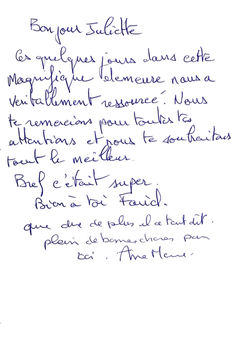 Bonjour Juliette
Ces quelques jours dans cette
magnifique demeuse nous a
veritablement ressourcé. Nous
te remercions pour toutes tes
attentions et nous te souhaitons
tout le meilleur.
Bref c'était super.
Bien à toi Farid.
que dire de plus il a tout dit.
plein de bonnes choses pour
toi. Anne Marie.